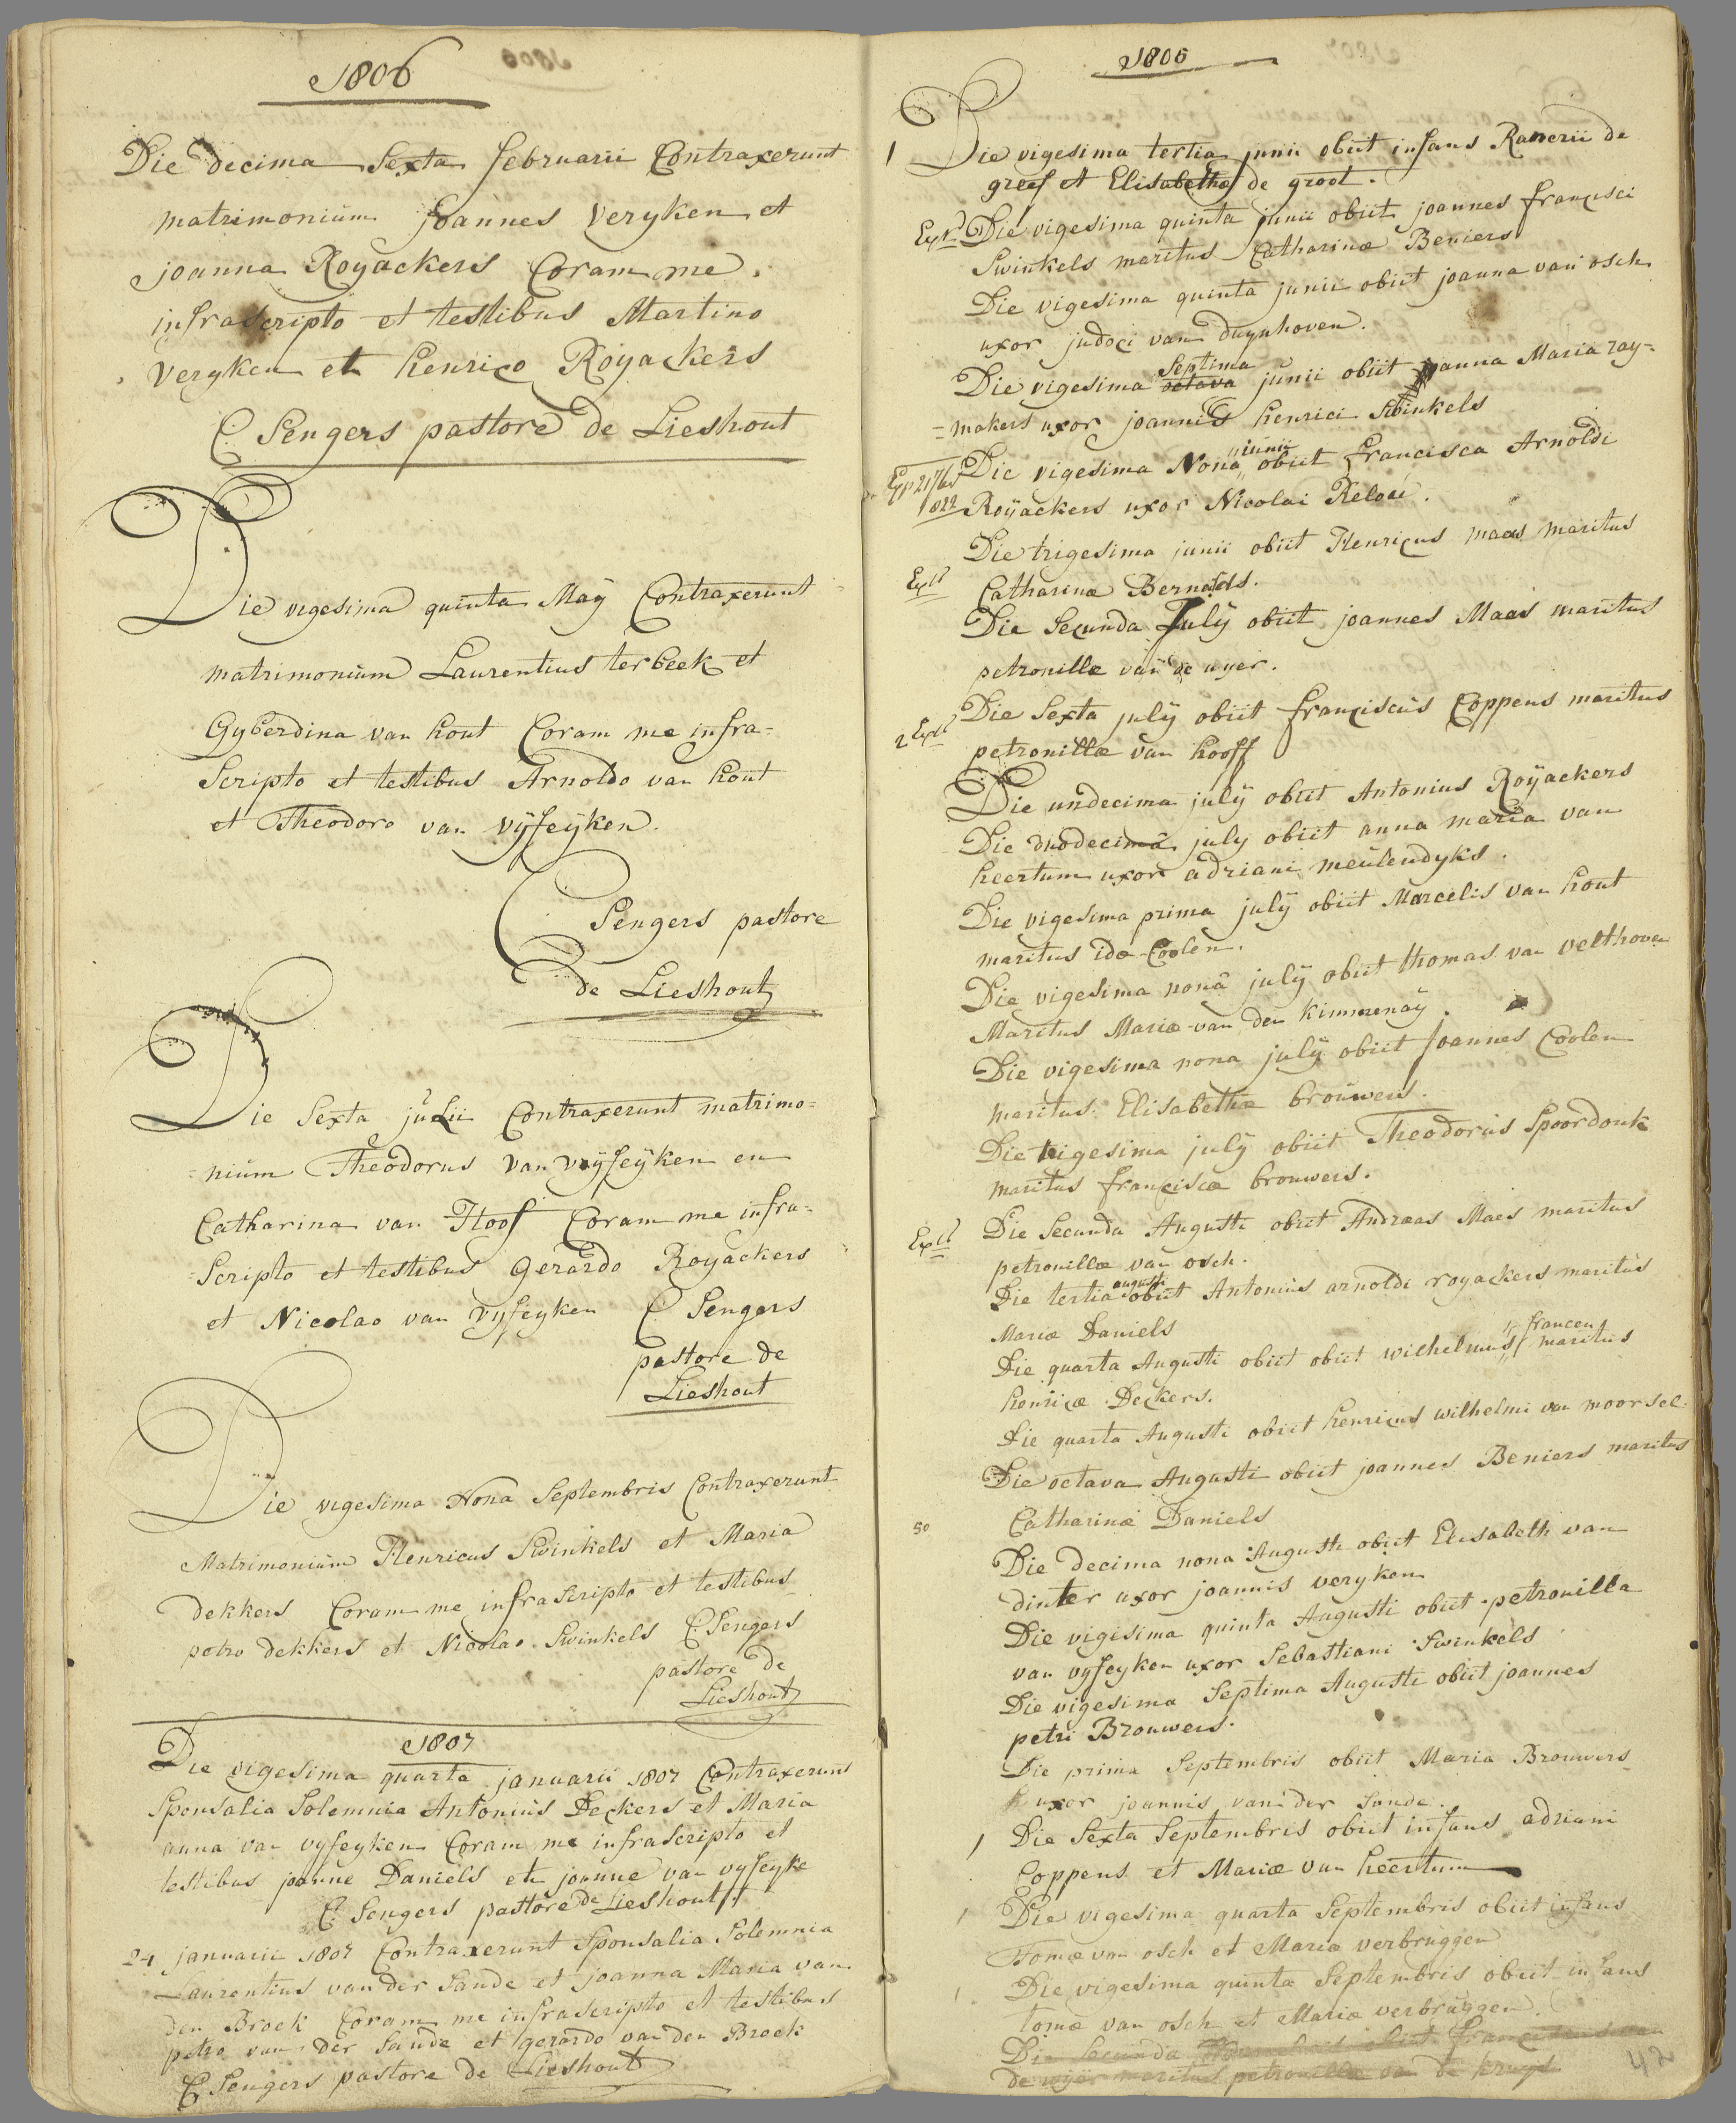 1806
Die decima Sexta februarii Contraxerunt
matrimonium Joannes Veryken et
joanna Royackers Coram me
infrascripto et testibus Martino
Veryken et henrico Royackers
C Sengers pastore de Lieshout
Die vigesima quinta Maÿ Contraxerunt
matrimonium Laurentius ter beek et
Gyberdina van hout Coram me infra=
Scripto et testibus Arnoldo van hout
et Theodoro van vÿfeÿken.
C Sengers pastore
de Lieshout
Die Sexta julii Contraxerunt matrimo=
=nium Theodorus van vÿfeÿken en
Catharina van Hoof Coram me infra=
=Scripto et testibus Gerardo Royackers
et Nicolao van vyfeyken C Sengers
pastore de
Lieshout
Die vigesima Nona Septembris Contraxerunt
Matrimonium Henricus Swinkels et Maria
dekkers Coram me infrascripto et testibus
petro dekkers et Nicolao Swinkels C Sengers
pastore de
Lieshout
1807
Die vigesima quarta januarii 1807 Contraxerunt
Sponsalia Solemnia Antonius Deckers et Maria
anna van vyfeyken Coram me infrascripto et
testibus joanne Daniels et joanne van vyfeyke
C Sengers pastore de Lieshout
24 januarii 1807 Contraxerunt Sponsalia Solemnia
Laurentius van der Sande et joanna Maria van
den Broek Coram me infrascripto et testibus
petro van der Sande et gerardo van den Broek
C Sengers pastore de Lieshout
1806
1 Die vigesima tertia junii obiit infans Ranerii de
greef et Elisabethæ de groot.
Die vigesima quinta junii obiit joannes francisci
Swinkels maritus Catharinæ Beniers
Die vigesima quinta junii obiit joanna van osch
uxor judoci van duynhoven.
Septima
Die vigesima octava junii obiit joanna Maria ray=
=makers uxor joannis henrici Swinkels
junii
Die vigesima Nona obiit francisca Arnoldi
Roÿackers uxor Nicolai
Die trigesima junii obiit Henricus maas maritus
Catharinæ
Die Secunda Julÿ obiit joannes Maas maritus
petronillæ van de
Die Sexta julÿ obiit franciscus Coppens maritus
petronillæ van hooff
Die undecima julÿ obiit Antonius Roÿackers
Die duodecima july obiit anna maria van
heertum uxor adriani meulendyks.
Die vigesima prima julÿ obiit Marcelis van hout
maritus idæ Coolen.
Die vigesima nona julÿ obiit thomas van velthoven
Maritus Mariæ van den kimmenaÿ.
Die vigesima nona julÿ obiit Joannes Coolen
maritus Elisabethæ brouwers.
Die trigesima julÿ obiit Theodorus Spoordonk
maritus franciscæ brouwers.
Die Secunda Augusti obiit Andreas Maes maritus
petronillæ van osch.
augusti
Die tertia obiit Antonius arnoldi royackers maritus
Mariæ Daniels
francen
Die quarta Augusti obiit obiit wilhelmus maritus
henricæ Deckers.
Die quarta Augusti obiit henricus wilhelmi van moorsel
Die octava Augusti obiit joannes Beniers maritus
50 Catharinæ Daniels
Die decima nona Augusti obiit Elisabeth van
dinter uxor joannis veryken
Die vigesima quinta Augusti obiit petronilla
van vyfeyken uxor Sebastiani Swinkels
Die vigesima Septima Augusti obiit joannes
petri Brouwers.
Die prima Septembris obiit Maria Brouwers
uxor joannis van der Sande.
1 Die Sexta Septembris obiit infans adriani
Coppens et Mariæ van heertum
1 Die vigesima quarta Septembris obiit infans
Tomæ van osch et Mariæ verbruggen
1 Die vigesima quinta Septembris obiit infans
tomæ van osch et Mariæ verbruggen.
Die Secunda obiit van
de maritus petronillæ van de
42